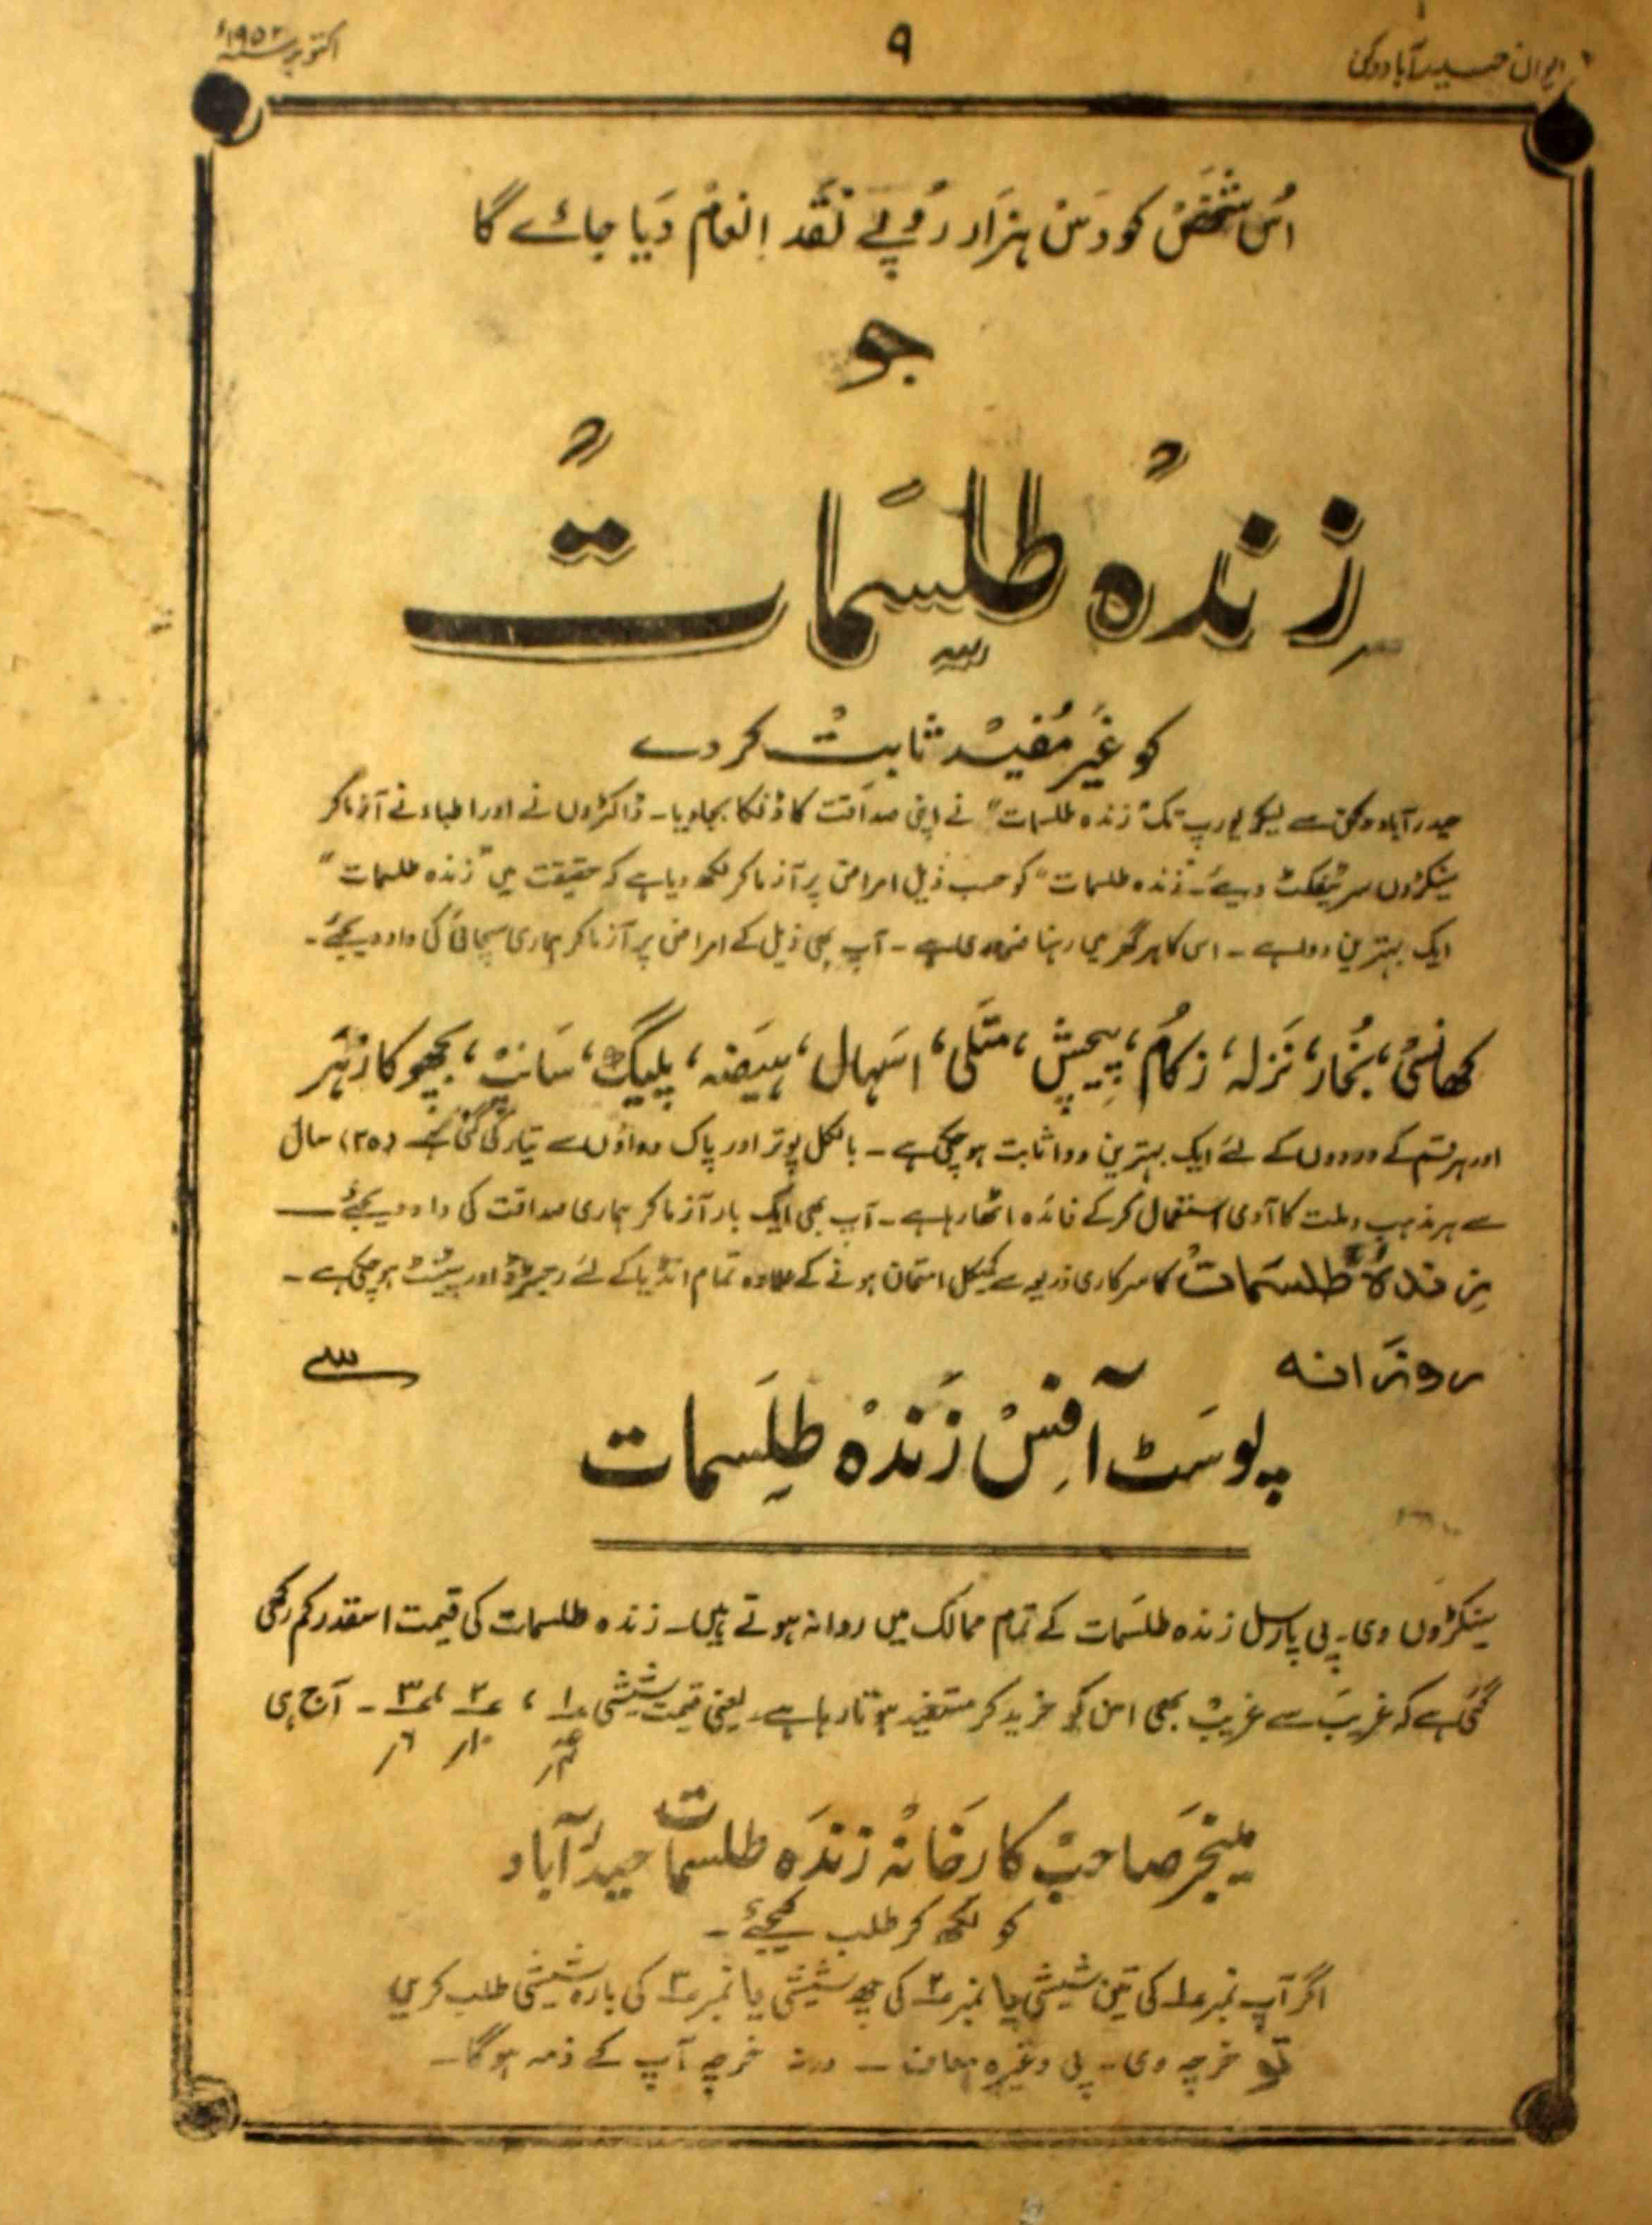 ایوان حیدرآباد دکن
۹
اکتوبر سنہ ۱۹۵۲ء
اُس شخص کو دس ہزار روپے نقد انعام دیا جائے گا
جو
زندہ طلسمات
کو غیر مفید ثابت کردے
حیدرآباد دکن سے لیکر یورپ تک "زندہ طلسمات" نے اپنی صداقت کا ڈنکا بجا دیا۔ ڈاکٹروں نے اور اطباء نے آزماکر
سینکڑوں سرٹیفکٹ دیئے۔ "زندہ طلسمات" کو حسب ذیل امراض پر آزماکر لکھ دیا ہے کہ حقیقت میں "زندہ طلسمات"
ایک بہترین دوا ہے۔ اس کا ہر گھر میں رہنا ضروری ہے۔ آپ بھی ذیل کے امراض پر آزماکر ہماری سچائی کی داد دیجئے۔
کھانسی، بخار، نزلہ، زکام، پیچش، متلی، اسہال، ہیضہ، پلیگ، سانپ، بچھو کا زہر
اور ہر قسم کے دردوں کے لئے ایک بہترین دوا ثابت ہوچکی ہے۔ بالکل پوتر اور پاک دواؤں سے تیار کی گئی ہے (۲۵) سال
سے ہر مذہب و ملت کا آدمی استعمال کرکے فائدہ اٹھا رہا ہے۔ آپ بھی ایک بار آزماکر ہماری صداقت کی داد دیجئے
زندہ طلسمات کا سرکاری ذریعہ سے کیمیکل امتحان ہونے کے علاوہ تمام انڈیا کے لئے رجسٹرڈ اور پیٹنٹ ہوچکی ہے۔
روزانہ
سے
پوسٹ آفس زندہ طلسمات
سینکڑوں وی۔ پی پارسل زندہ طلسمات کے تمام ممالک میں روانہ ہوتے ہیں۔ زندہ طلسمات کی قیمت اسقدر کم رکھی
گئی ہے کہ غریب سے غریب بھی اس کو خرید کر مستفید ہوتا رہا ہے۔ یعنی قیمت شیشی ۱ ، ۲ ، ۳ ۔ آج ہی
۱۰ر ۶ر
مینجر صاحب کارخانہ زندہ طلسمات حیدرآباد
کو لکھ کر طلب کیجئے۔
اگر آپ نمبر ۱ کی تین شیشی یا نمبر ۲ کی چھ شیشی یا نمبر ۳ کی بارہ شیشی طلب کریں
تو خرچہ وی۔ پی وغیرہ معاف۔ ورنہ خرچہ آپ کے ذمہ ہوگا۔